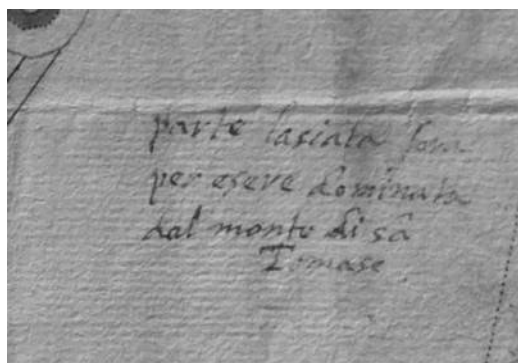 parte lasiata fora
per esere dominata
dal monte di sã
Tomase